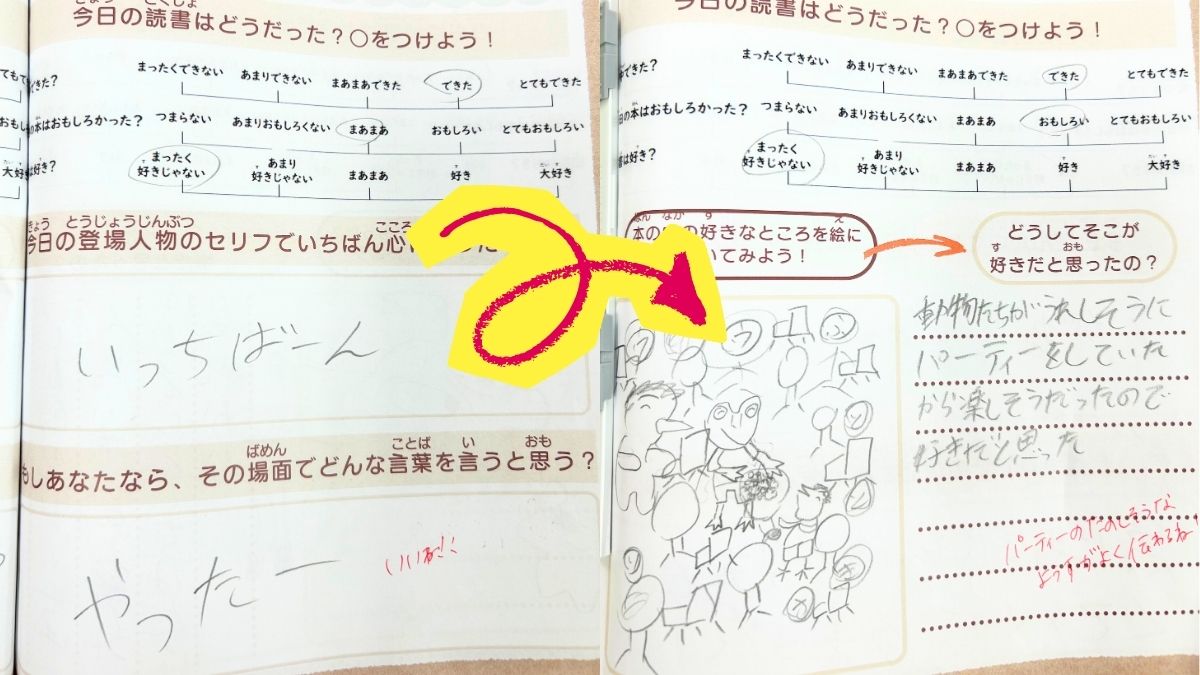 今日の読書はどうだった？○をつけよう！
まったくできない あまりできない まあまあできた できた とてもできた
の本はおもしろかった？ つまらない あまりおもしろくない まあまあ おもしろい とてもおもしろい
は好き？ まったく好きじゃない あまり好きじゃない まあまあ 好き 大好き
今日の登場人物のセリフでいちばん心に
いっちばーん
もしあなたなら、その場面でどんな言葉を言うと思う？
やったー
いいね!!
今日の読書はどうだった？○をつけよう！
できた？ まったくできない あまりできない まあまあできた できた とてもできた
日の本はおもしろかった？ つまらない あまりおもしろくない まあまあ おもしろい とてもおもしろい
は好き？ まったく好きじゃない あまり好きじゃない まあまあ 好き 大好き
本の
の好きなところを絵に
いてみよう！
どうしてそこが
好きだと思ったの？
動物たちがうれしそうに
パーティーをしていた
から楽しそうだったので
好きだと思った
パーティーのたのしそうな
ようすがよく伝わるね